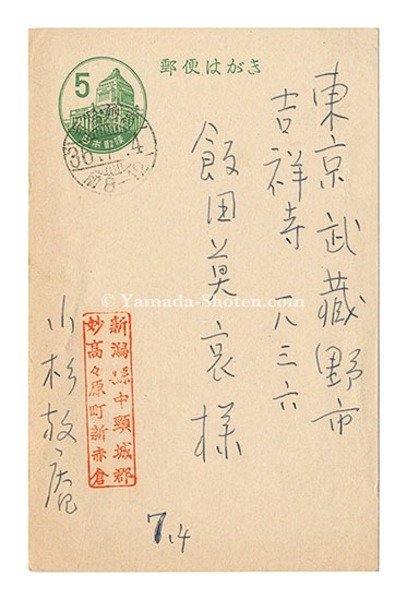 郵便はがき
5
日本郵便
東京武蔵野市
吉祥寺一八三六
飯田莫哀様
新潟県中頸城郡
妙高々原町新赤倉
小杉放庵
7.4
© Yamada-Shoten.com